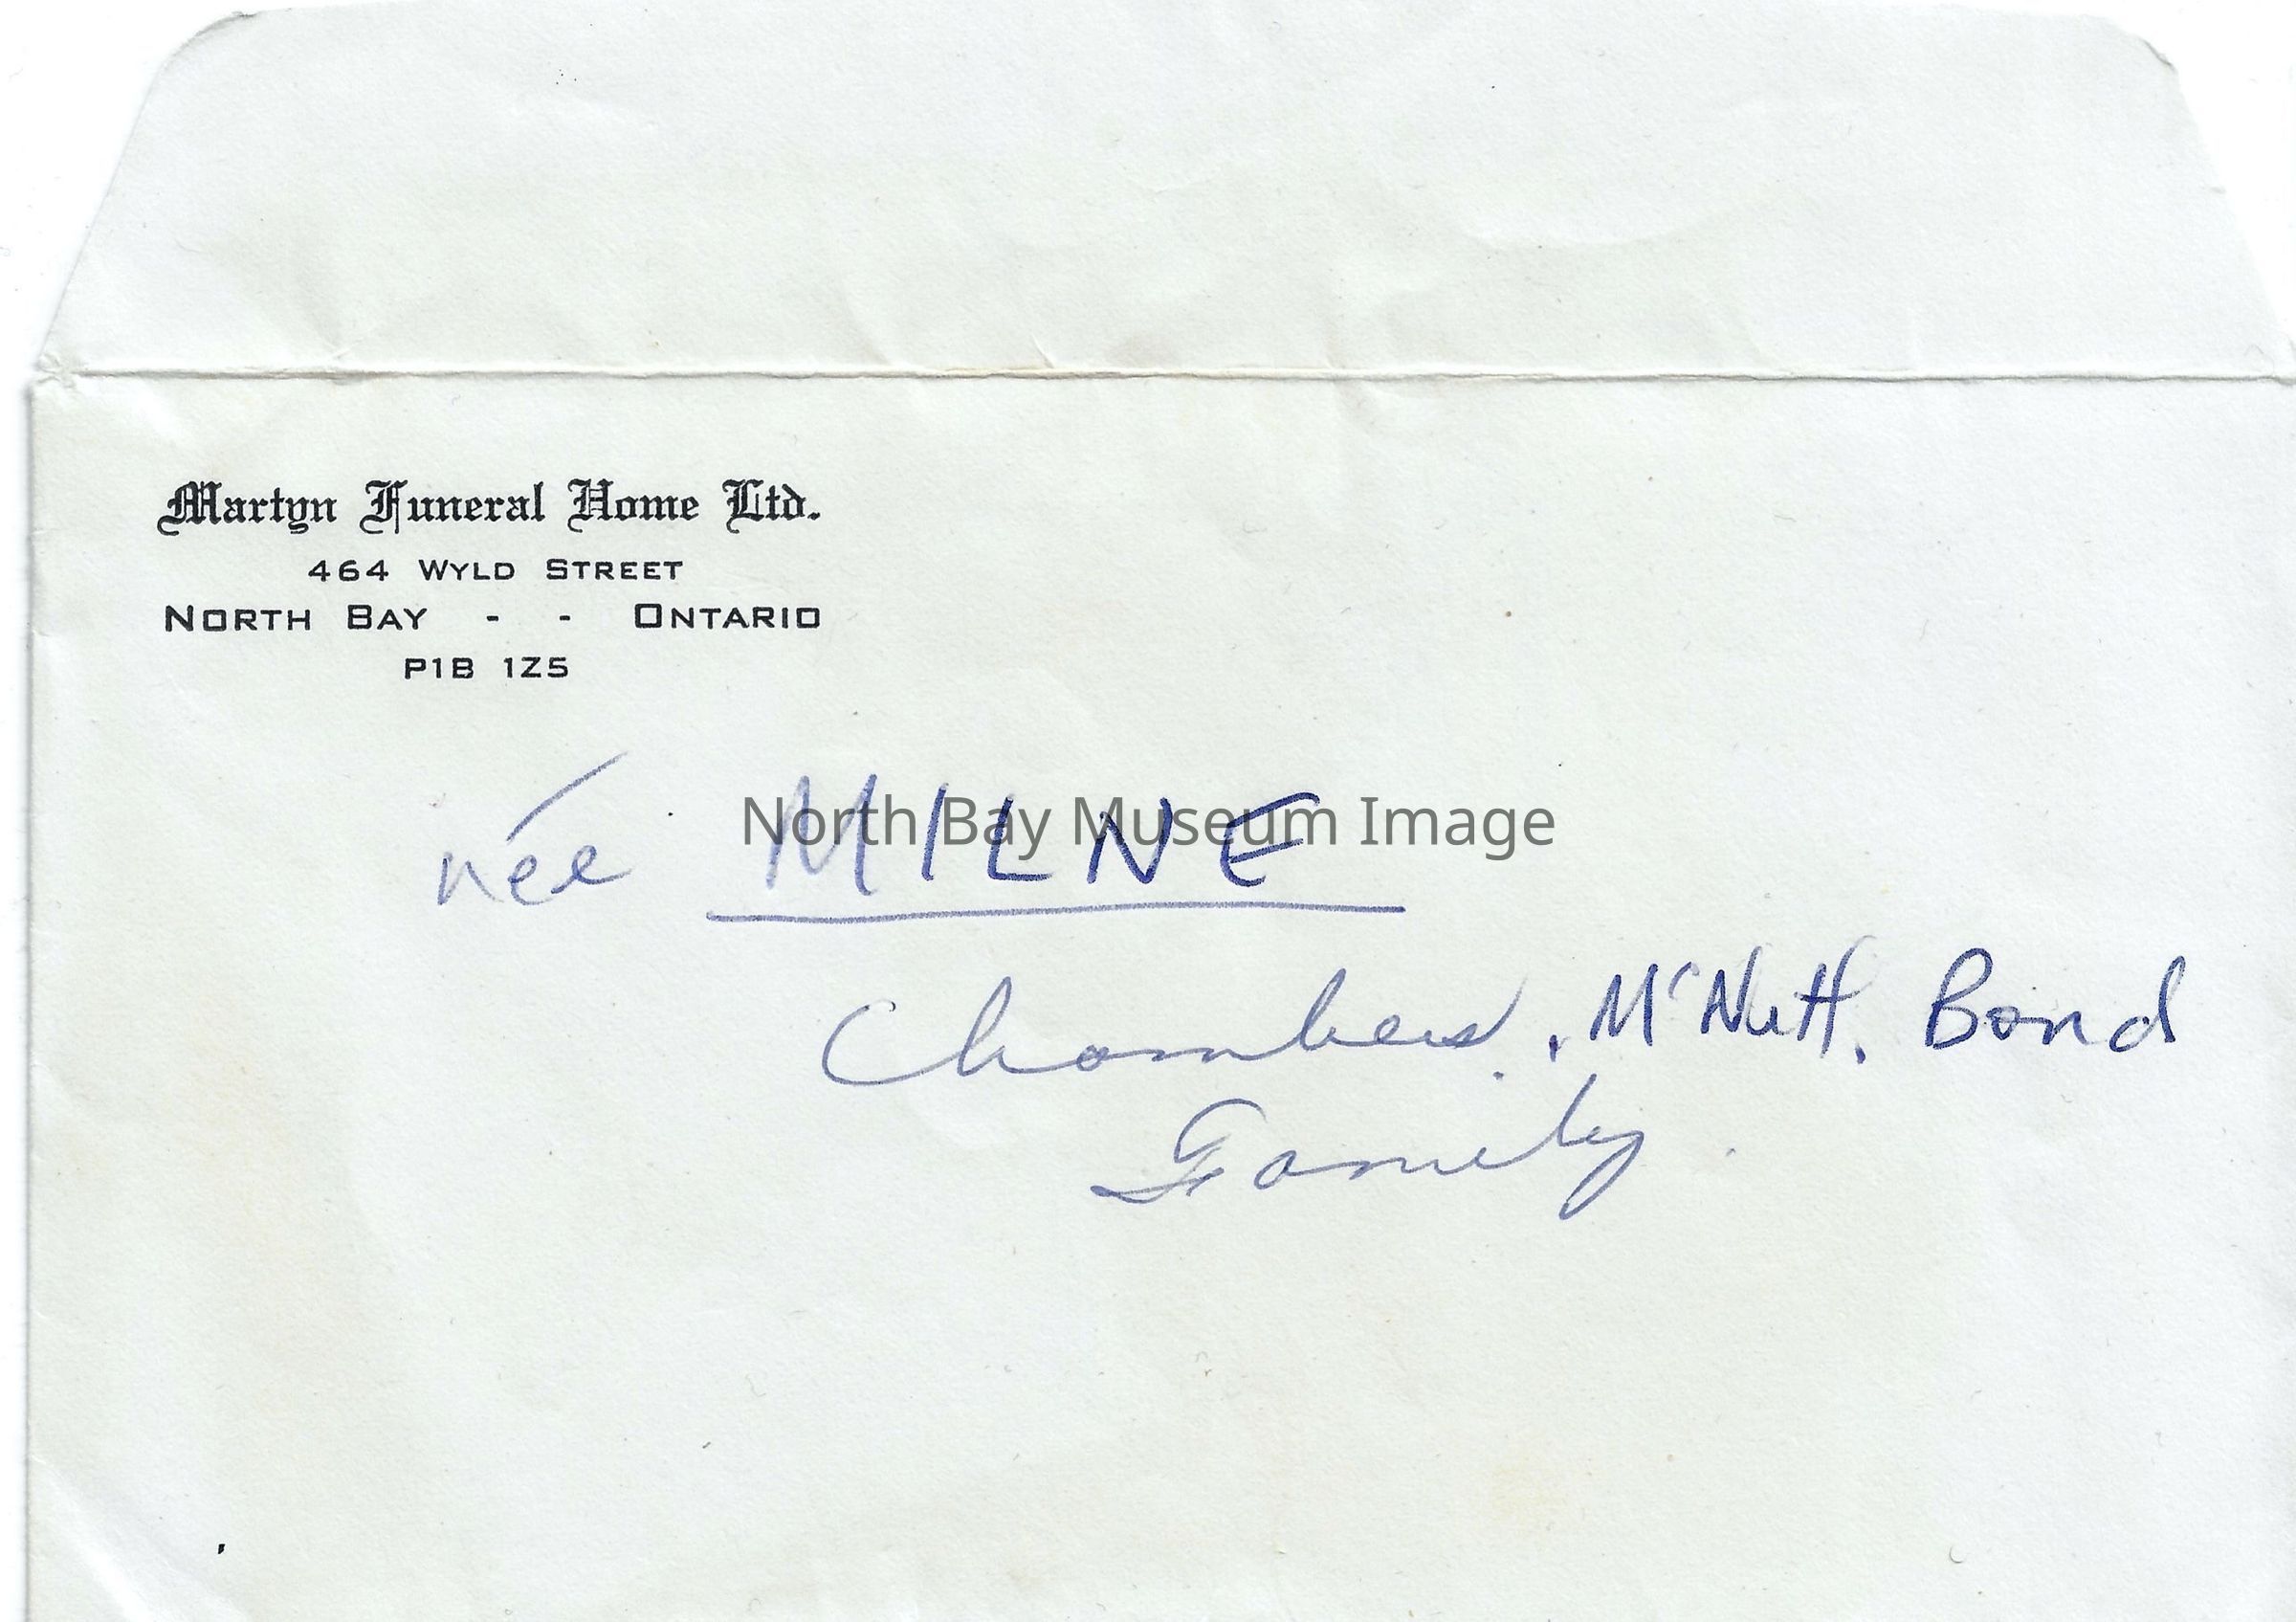 Martyn Funeral Home Ltd.
464 WYLD STREET
NORTH BAY - - ONTARIO
P1B 1Z5
née MILNE
North Bay Museum Image
Chambers, McNutt, Bond
Family